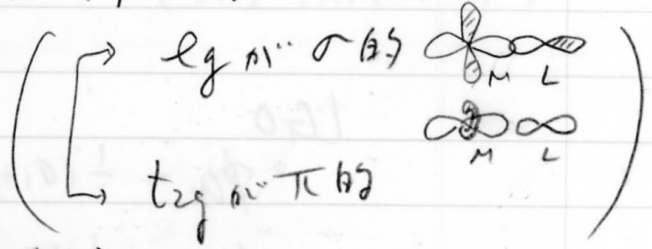 ( egが σ的
M L
M L
t2gが π的 )